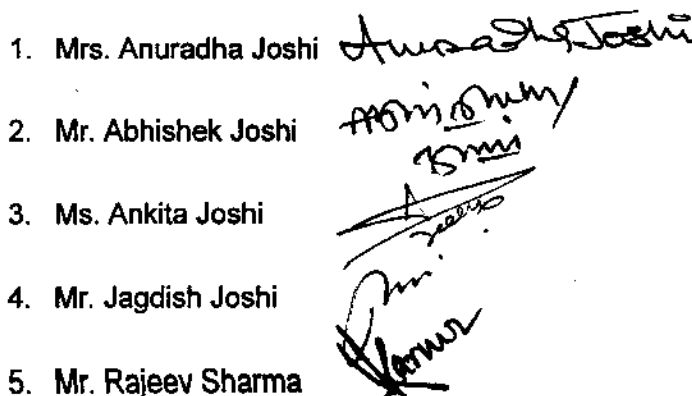 1. Mrs. Anuradha Joshi Anuradha Joshi
2. Mr. Abhishek Joshi
3. Ms. Ankita Joshi
4. Mr. Jagdish Joshi
5. Mr. Rajeev Sharma